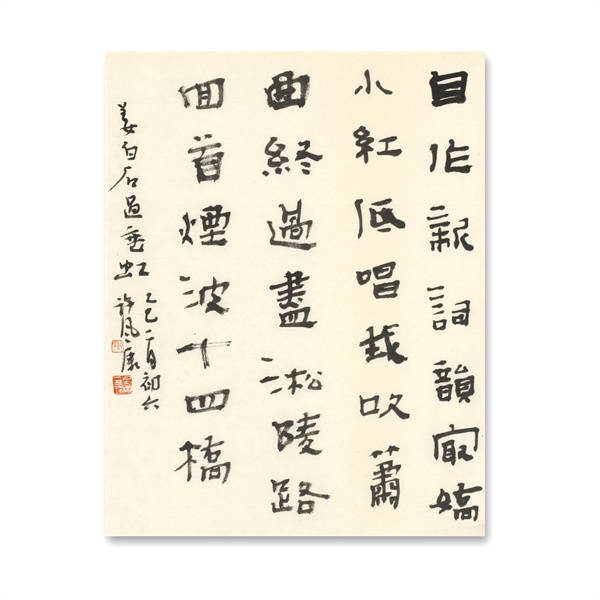 自作新詞韻㝡嬌
小紅低唱我吹簫
曲終過盡淞陵路
回首煙波十四橋
姜白石過垂虹
乙巳二月初六
許風康